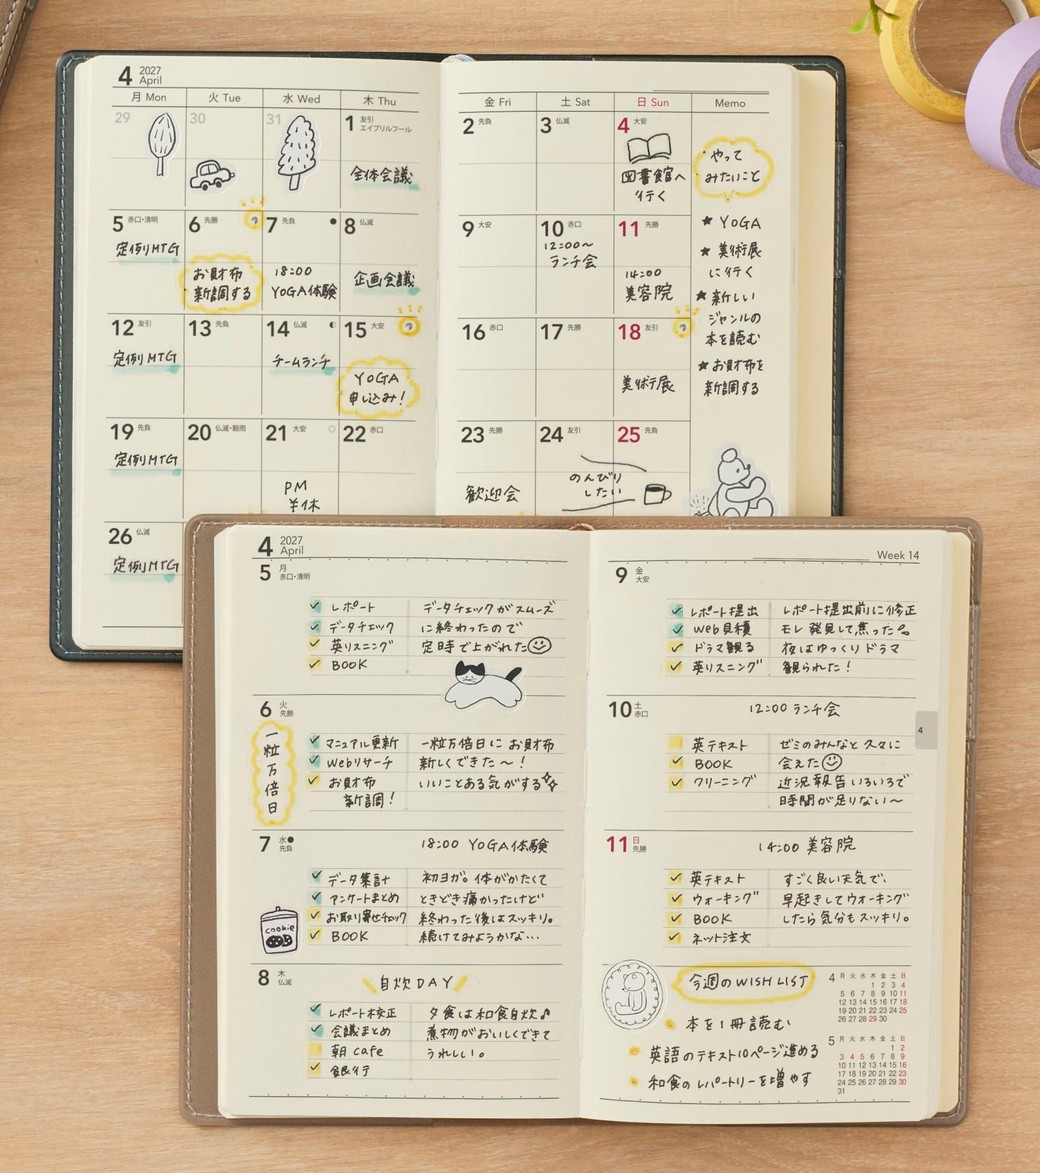 4 2027 April
月 Mon 火 Tue 水 Wed 木 Thu
29 30 31 1 友引 エイプリルフール
全体会議
5 赤口・清明 6 先勝 7 先負 8 仏滅
定例MTG
お財布
新調する
18:00
YOGA体験
企画会議
12 友引 13 先負 14 仏滅 15 大安
定例MTG
チームランチ
YOGA
申し込み!
19 先負 20 仏滅・穀雨 21 大安 22 赤口
定例MTG
PM
半休
26 仏滅
定例MTG
金 Fri 土 Sat 日 Sun Memo
2 先負 3 仏滅 4 大安
図書館へ
行く
9 大安 10 赤口 11 先勝
12:00~
ランチ会
14:00
美容院
16 赤口 17 先勝 18 友引
美術展
23 先勝 24 友引 25 先負
歓迎会
のんびり
したい
やって
みたいこと
★ YOGA
★ 美術展
に行く
★ 新しい
ジャンルの
本を読む
★ お財布を
新調する
4 2027 April
5 月 赤口・清明
レポート データチェックがスムーズ
データチェック に終わったので
英リスニング 定時で上がれた
BOOK
6 火 先勝
一粒万倍日
マニュアル更新 一粒万倍日にお財布
Webリサーチ 新しくできた〜!
お財布 いいことある気がする
新調!
7 水 先負
18:00 YOGA体験
データ集計 初ヨガ。体がかたくて
アンケートまとめ ときどき痛かったけど
お取り寄せチェック 終わった後はスッキリ。
BOOK 続けてみようかな…
cookie
8 木 仏滅
自炊DAY
レポート校正 夕食は和食自炊♪
会議まとめ 煮物がおいしくできて
朝cafe うれしい。
銀行
Week 14
9 金 大安
レポート提出 レポート提出前に修正
Web見積 モレ発見して焦った
ドラマ観る 夜はゆっくりドラマ
英リスニング 観られた!
10 土 赤口
12:00 ランチ会
4
英テキスト ゼミのみんなと久々に
BOOK 会えた
クリーニング 近況報告いろいろで
時間が足りない〜
11 日 先勝
14:00 美容院
英テキスト すごく良い天気で、
ウォーキング 早起きしてウォーキング
BOOK したら気分もスッキリ。
ネット注文
今週のWISH LIST
本を1冊読む
英語のテキスト10ページ進める
和食のレパートリーを増やす
4 月 火 水 木 金 土 日
1 2 3 4
5 6 7 8 9 10 11
12 13 14 15 16 17 18
19 20 21 22 23 24 25
26 27 28 29 30
5 月 火 水 木 金 土 日
1 2
3 4 5 6 7 8 9
10 11 12 13 14 15 16
17 18 19 20 21 22 23
24 25 26 27 28 29 30
31